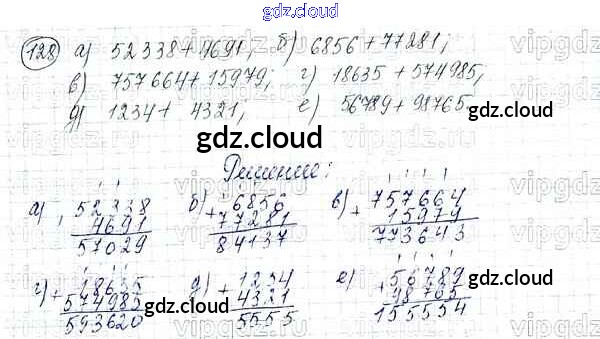 gdz.cloud
128 а) 52338+4691; б) 6856+77281;
в) 757664+15979; г) 18635 + 574985;
д) 1234+ 4321; е) 56789+98765.
gdz.cloud
Решение:
а) + 52338
4691
57029
б) + 6856
77281
84137
в) + 757664
15979
773643
г) + 18635
574985
593620
д) + 1234
4321
5555
е) + 56789
98765
155554
gdz.cloud
gdz.cloud
gdz.cloud